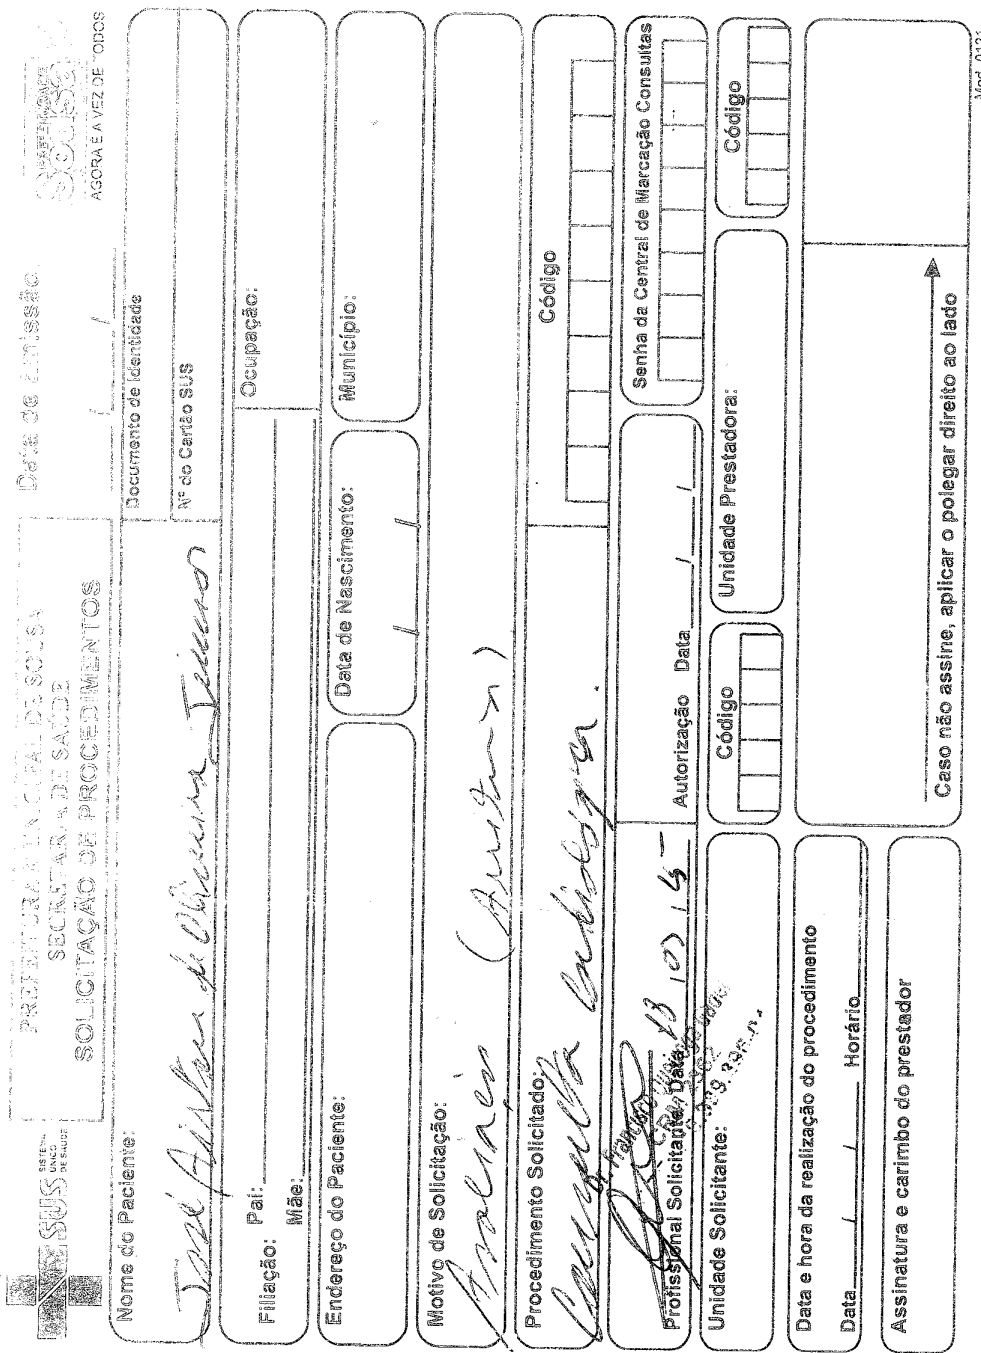 SUS SISTEMA ÚNICO DE SAÚDE
PREFEITURA MUNICIPAL DE SOUSA
SECRETARIA DE SAÚDE
SOLICITAÇÃO DE PROCEDIMENTOS
Data de emissão
/ /
PREFEITURA DE
Sousa
AGORA É A VEZ DE TODOS
Nome do Paciente:
José de Oliveira
Documento de Identidade
Nº do Cartão SUS
Filiação: Pai:
Mãe:
Ocupação:
Endereço do Paciente:
Data de Nascimento:
/ /
Município:
Motivo de Solicitação:
Avaliação (Arritmia)
Procedimento Solicitado:
Consulta Cardiológica.
Código
Profissional Solicitante Data 13 / 03 / 15
Autorização Data / /
Senha da Central de Marcação Consultas
Unidade Solicitante:
Código
Unidade Prestadora:
Código
Data e hora da realização do procedimento
Data / / Horário
Assinatura e carimbo do prestador
Caso não assine, aplicar o polegar direito ao lado
Mod. 0121